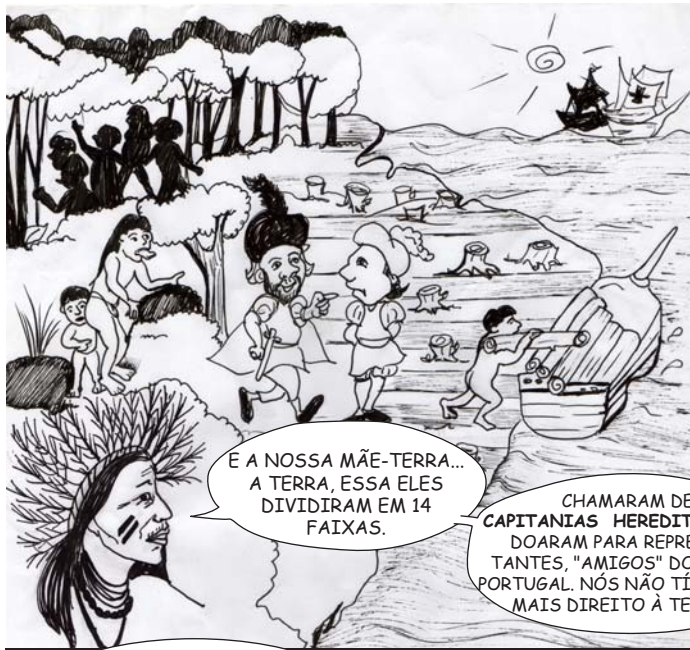 E A NOSSA MÃE-TERRA...
A TERRA, ESSA ELES
DIVIDIRAM EM 14
FAIXAS.
CHAMARAM DE
CAPITANIAS
DOARAM PARA
TANTES, "AMIGOS"
PORTUGAL. NÓS NÃO
MAIS DIREITO À